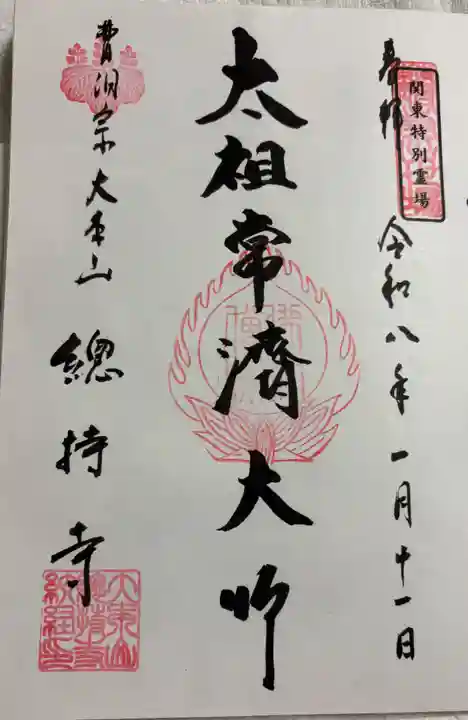 奉拝
関東特別霊場
令和八年一月十一日
太祖常濟大師
曹洞宗大本山 總持寺